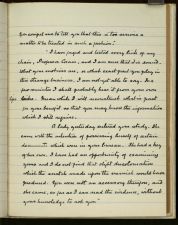 you compel me to tell you that this is too serious a
matter to be treated in such a fashion."
"I have forged and tested every link of my
chain, Professor Coram, and I am sure that it is sound.
What your motives are, or what exact part you play in
this strange business, I am not yet able to say. In a
few minutes I shall probably hear it from your own
lips. Meanwhile I will reconstruct what is past
for your benefit, so that you may know the information
which I still require.
"A lady yesterday entered your study. She
came with the intention of possessing herself of certain
documents which were in your bureau. She had a key
of her own. I have had an opportunity of examining
yours and I do not find that slight discolouration
which the scratch made upon the varnish would have
produced. You were not an accessory therefore, and
she came, so far as I can read the evidence, without
your knowledge to rob you."